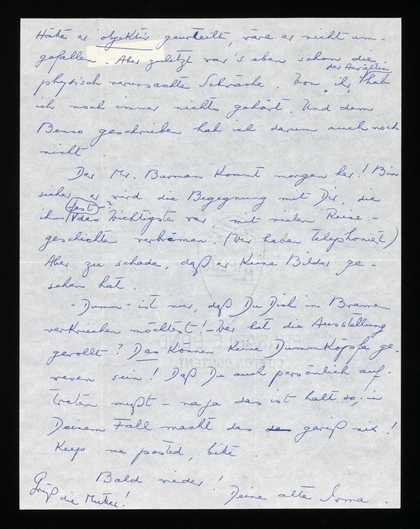 Hätte er objektiv geurteilt, wäre er nicht um-
gefallen. Aber zuletzt war's eben schon die
der Anrufen
physisch verursachte Schwäche. Von ihr hab
ich noch immer nichts gehört. Und dem
Benno geschrieben hab ich darum auch noch
nicht
Der Mr. Burman kommt morgen her! Bin
sicher er wird die Begegnung mit Dir, die
fast
ihm das Wichtigste war mit vielen Reise-
geschichten verbrämen. (Wir haben telephoniert)
Aber zu schade, daß er keine Bilder ge-
sehen hat.
- Dumm - ist nur, daß Du Dich in Bremen
verkriechen möchtest! - Wer hat die Ausstellung
gewollt? Das können keine Dummköpfe ge-
wesen sein! Daß Du auch persönlich auf-
treten mußt - na ja das ist halt so, in
Deinem Fall macht das gewiß nix!
Keep me posted, bitte
Bald wieder!
Grüß die Mutter!
Deine alte Irma